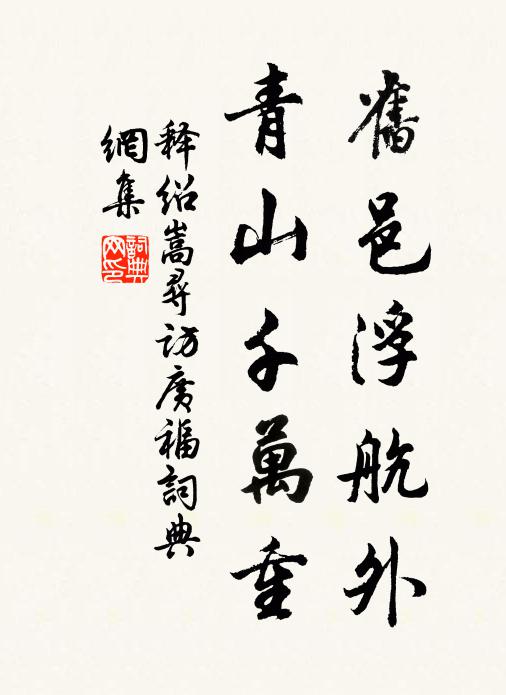 舊邑浮航外
青山千萬重
释绍嵩尋访廣福詞典
網集
詞典网印